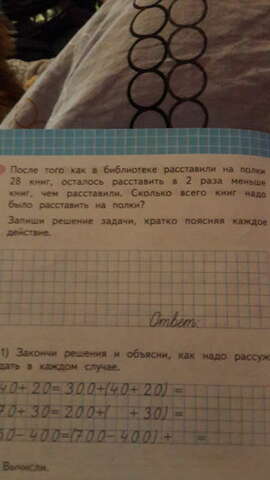 После того как в библиотеке расставили на полки
28 книг, осталось расставить в 2 раза меньше
книг, чем расставили. Сколько всего книг надо
было расставить на полки?
Запиши решение задачи, кратко поясняя каждое
действие.
Ответ:
1) Закончи решения и объясни, как надо рассуж
дать в каждом случае.
40+ 20= 300+(40+ 20) =
70+ 30= 200+( + 30) =
60- 400=(700-400) + =
Вычисли.